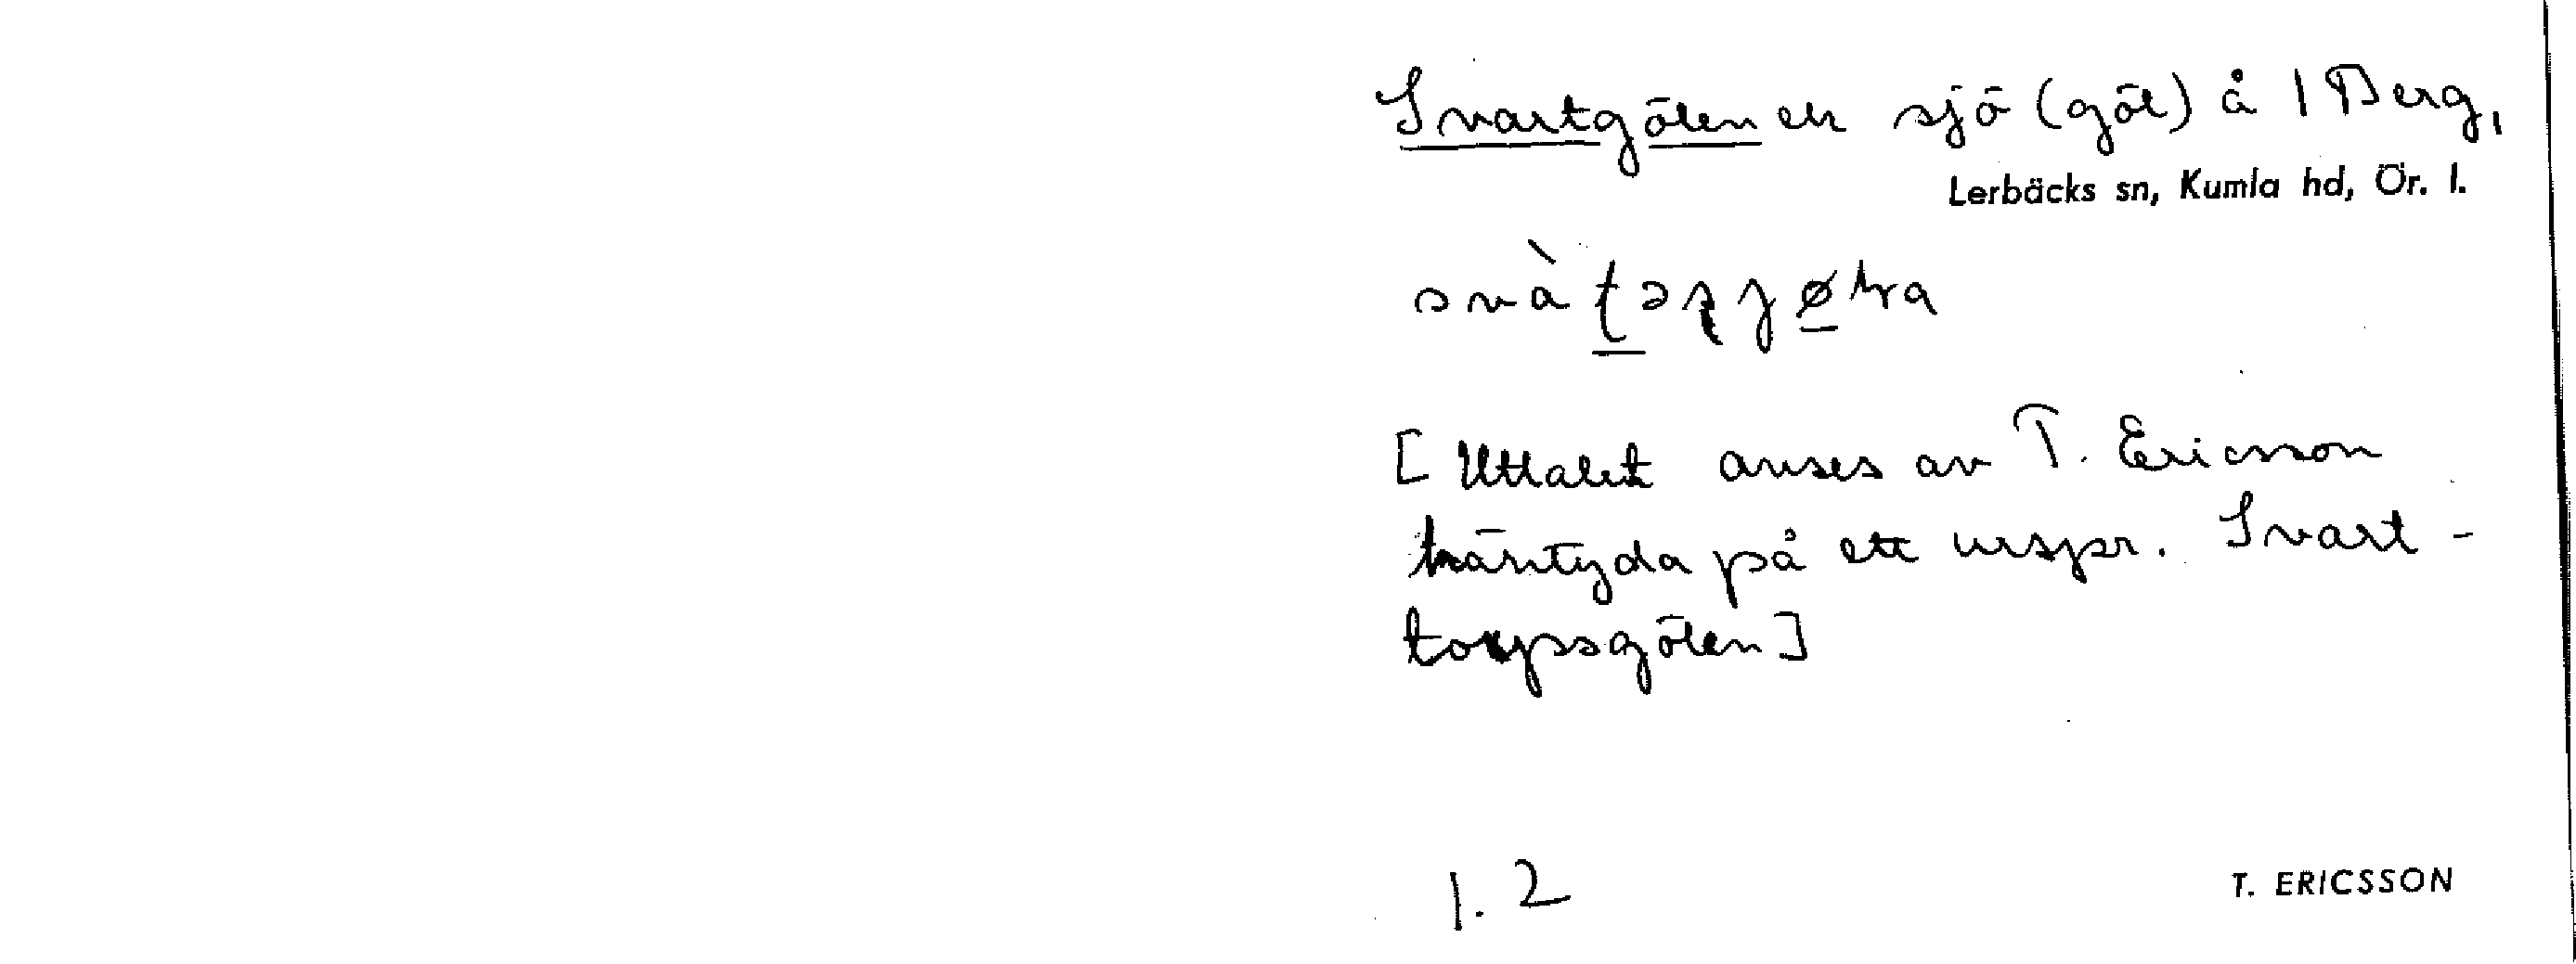 Svartgölen en sjö (göl) å 1 Berg,
Lerbäcks sn, Kumla hd, Ör. l.
[Uttalet anses av T. Ericsson
häntyda på ett urspr. Svart-
torpsgölen]
1. 2
T. ERICSSON